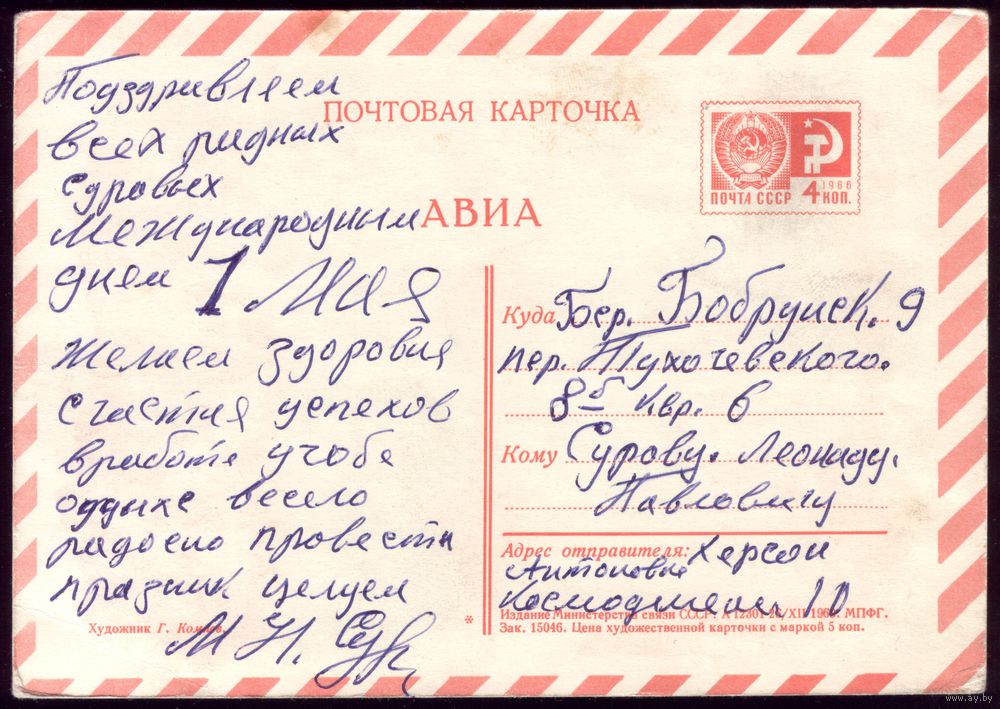 Подздравляем
всех родных
Суровых
Международным
днем 1 Мая
желаем здоровия
счастия успехов
вработе учобе
оддыхе весело
радосно провести
празник целуем
М Н. Сур
Художник Г. Комлев.
ПОЧТОВАЯ КАРТОЧКА
АВИА
1966
ПОЧТА СССР 4 КОП.
Куда Бср. Бобруйск. 9
пер. Тухачевского.
8б квр. 6
Кому Сурову. Леониду.
Павловичу
Адрес отправителя: Херсон
Антоновка
Космодемян 10
Издание Министерства связи СССР. А 12301 26/XII МПФГ.
Зак. 15046. Цена художественной карточки с маркой 5 коп.
*
www.ay.by